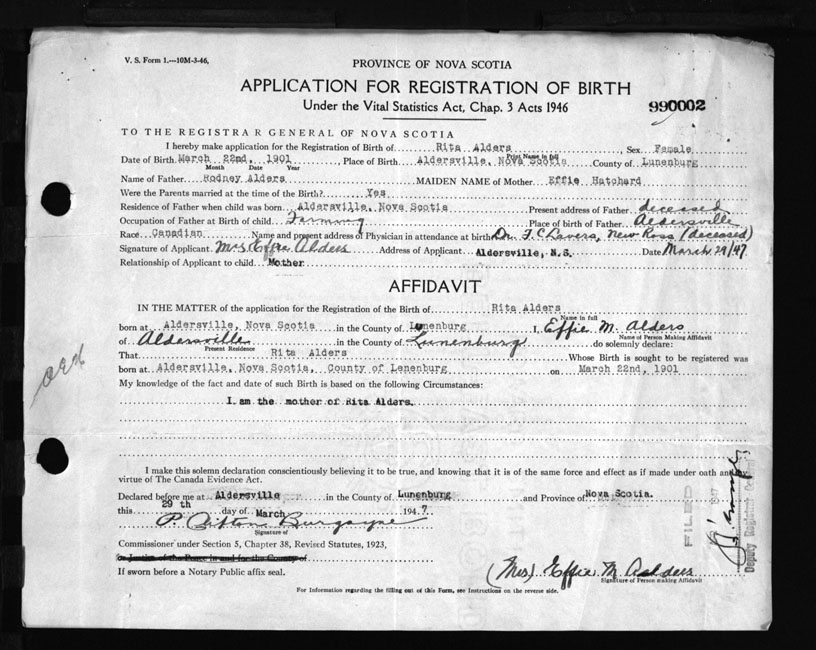 V. S. Form 1.---10M-3-46,
PROVINCE OF NOVA SCOTIA
APPLICATION FOR REGISTRATION OF BIRTH
Under the Vital Statistics Act, Chap. 3 Acts 1946
990002
TO THE REGISTRAR GENERAL OF NOVA SCOTIA
I hereby make application for the Registration of Birth of Rita Alders, Sex Female
Print Name in full
Date of Birth March 22nd, 1901, Place of Birth Aldersville, Nova Scotia County of Lunenburg
Month Date Year
Name of Father Rodney Alders MAIDEN NAME of Mother Effie Hatchard
Were the Parents married at the time of the Birth? Yes
Residence of Father when child was born Aldersville, Nova Scotia Present address of Father deceased
Occupation of Father at Birth of child Farming Place of birth of Father Aldersville
Race Canadian Name and present address of Physician in attendance at birth Dr. F. C. Lavers, New Ross (deceased)
Signature of Applicant Mrs Effie Alders Address of Applicant Aldersville, N.S. Date March 29/47
Relationship of Applicant to child Mother
AFFIDAVIT
IN THE MATTER of the application for the Registration of the Birth of Rita Alders
Name in full
born at Aldersville, Nova Scotia in the County of Lunenburg I, Effie M. Alders
Name of Person Making Affidavit
of Aldersville in the County of Lunenburg do solemnly declare:
Present Residence
That Rita Alders Whose Birth is sought to be registered was
born at Aldersville, Nova Scotia, County of Lenenburg on March 22nd, 1901
My knowledge of the fact and date of such Birth is based on the following Circumstances:
I am the mother of Rita Alders.
I make this solemn declaration conscientiously believing it to be true, and knowing that it is of the same force and effect as if made under oath and by
virtue of The Canada Evidence Act.
Declared before me at Aldersville in the County of Lunenburg and Province of Nova Scotia.
this 29 th day of March 1947
P. Clifton Burgoyne
Signature of
Commissioner under Section 5, Chapter 38, Revised Statutes, 1923,
or Justice of the Peace in and for the County of
If sworn before a Notary Public affix seal.
(Mrs) Effie M Alders
Signature of Person making Affidavit
For Information regarding the filling out of this Form, see Instructions on the reverse side.
FILED
1947
Deputy Registrar